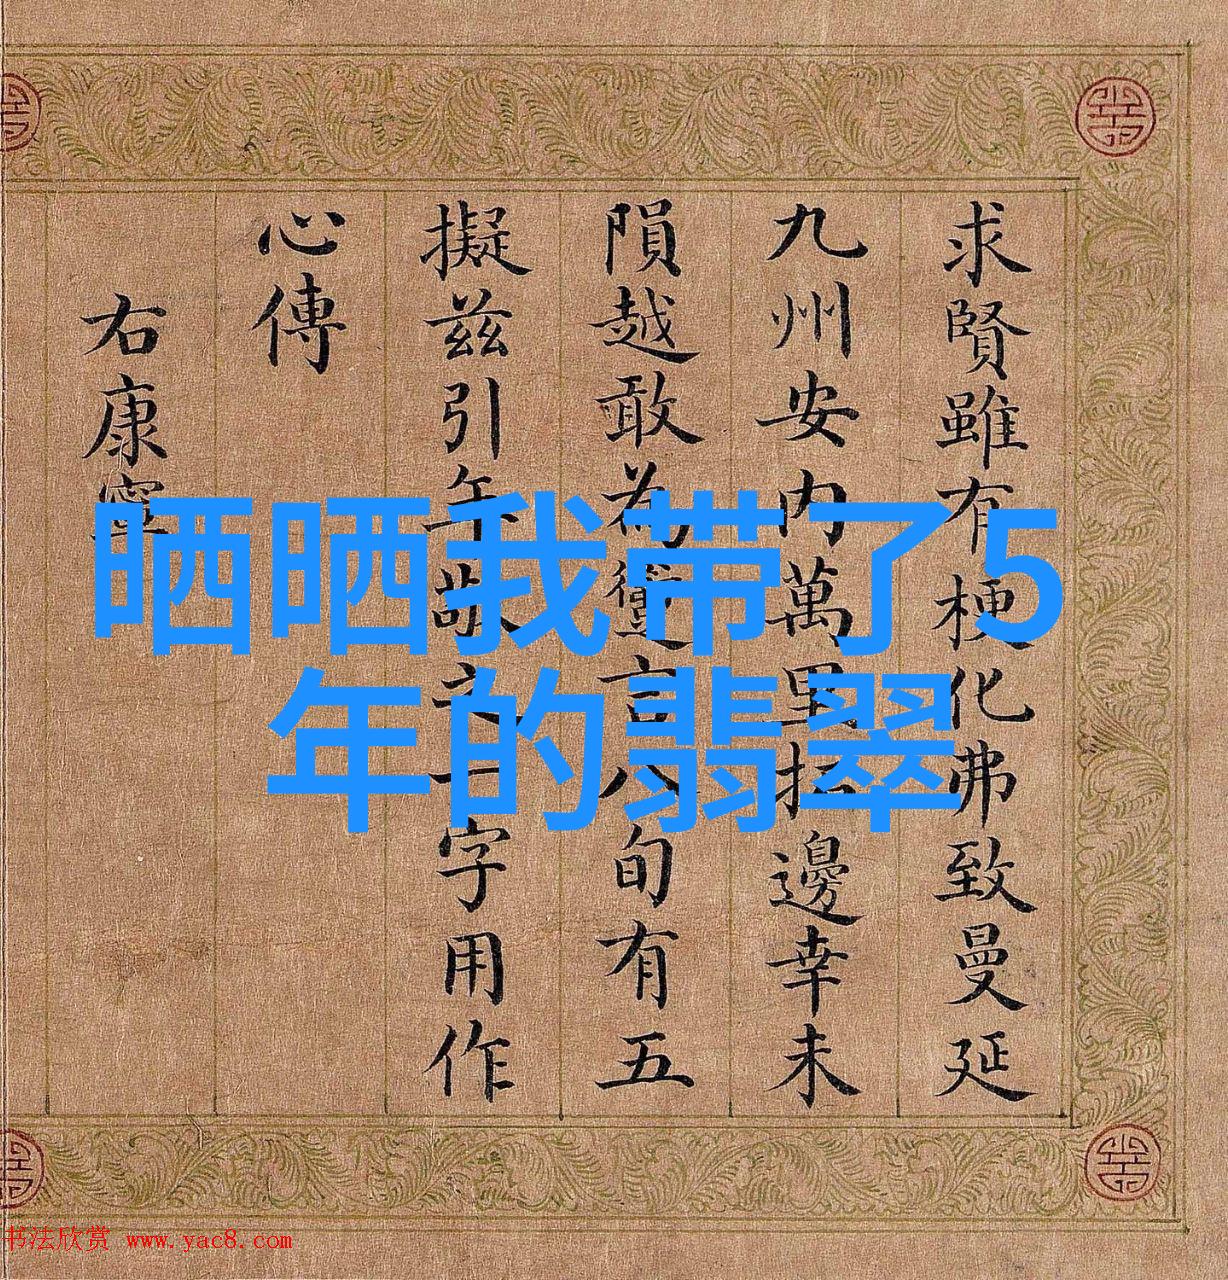 晒晒我带了5
年的翡翠
求賢雖有梗化弗致曼延
九州安内萬里拓邊幸未
隕越敢為言八旬有五
擬兹引年敬之一字用作
心傳
右康寧
书法欣赏 www.yac8.com